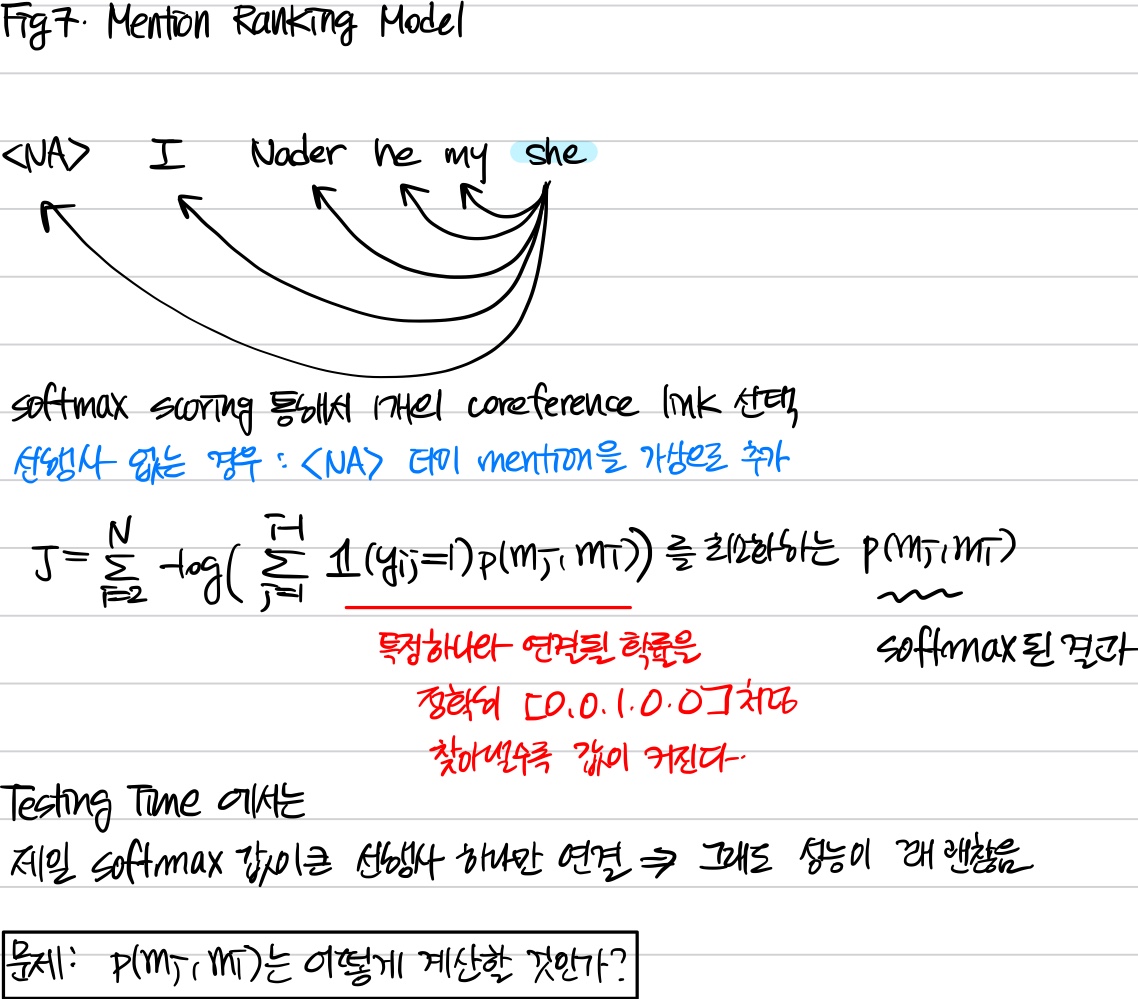 Fig 7. Mention Ranking Model
<NA> I Nader he my she
softmax scoring 통해서 1개의 coreference link 선택
선행사 없는 경우 : <NA> 더미 mention을 가상으로 추가
J = \sum_{i=2}^{N} -log( \sum_{j=1}^{i-1} 𝟙(y_{ij}=1)p(m_j, m_i)) 를 최소화하는 p(m_j, m_i)
특정하나와 연결될 확률을 softmax된 결과
정확히 [0.0.1.0.0]처럼
찾아낼수록 값이 커진다..
Testing Time 에서는
제일 softmax 값이 큰 선행사 하나만 연결 ⇒ 그래도 성능이 꽤 괜찮음
문제: p(m_j, m_i)는 어떻게 계산할 것인가?